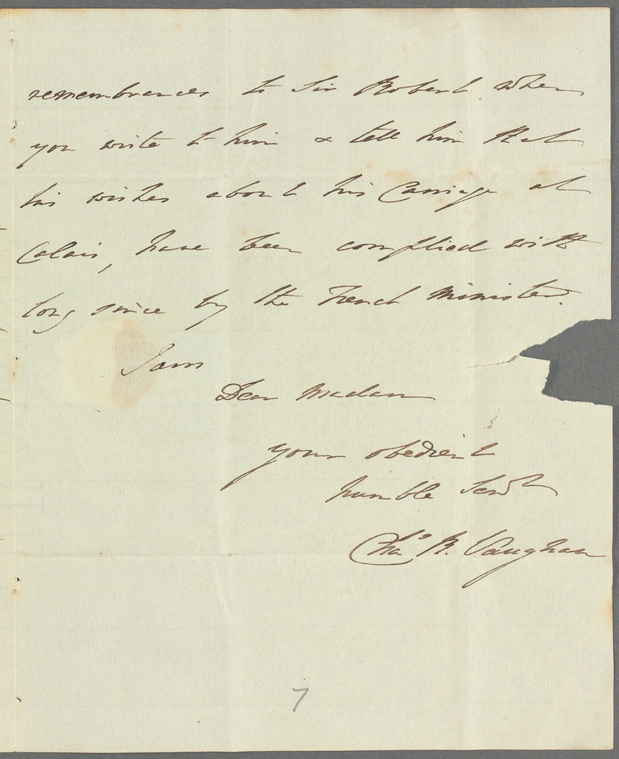 remembrances to Sir Robert when
you write to him & tell him that
his wishes about his Carriage at
Calais, have been complied with
long since by the French Minister.
I am
Dear Madam
your obedient
humble Servt
Chas R. Vaughan
7